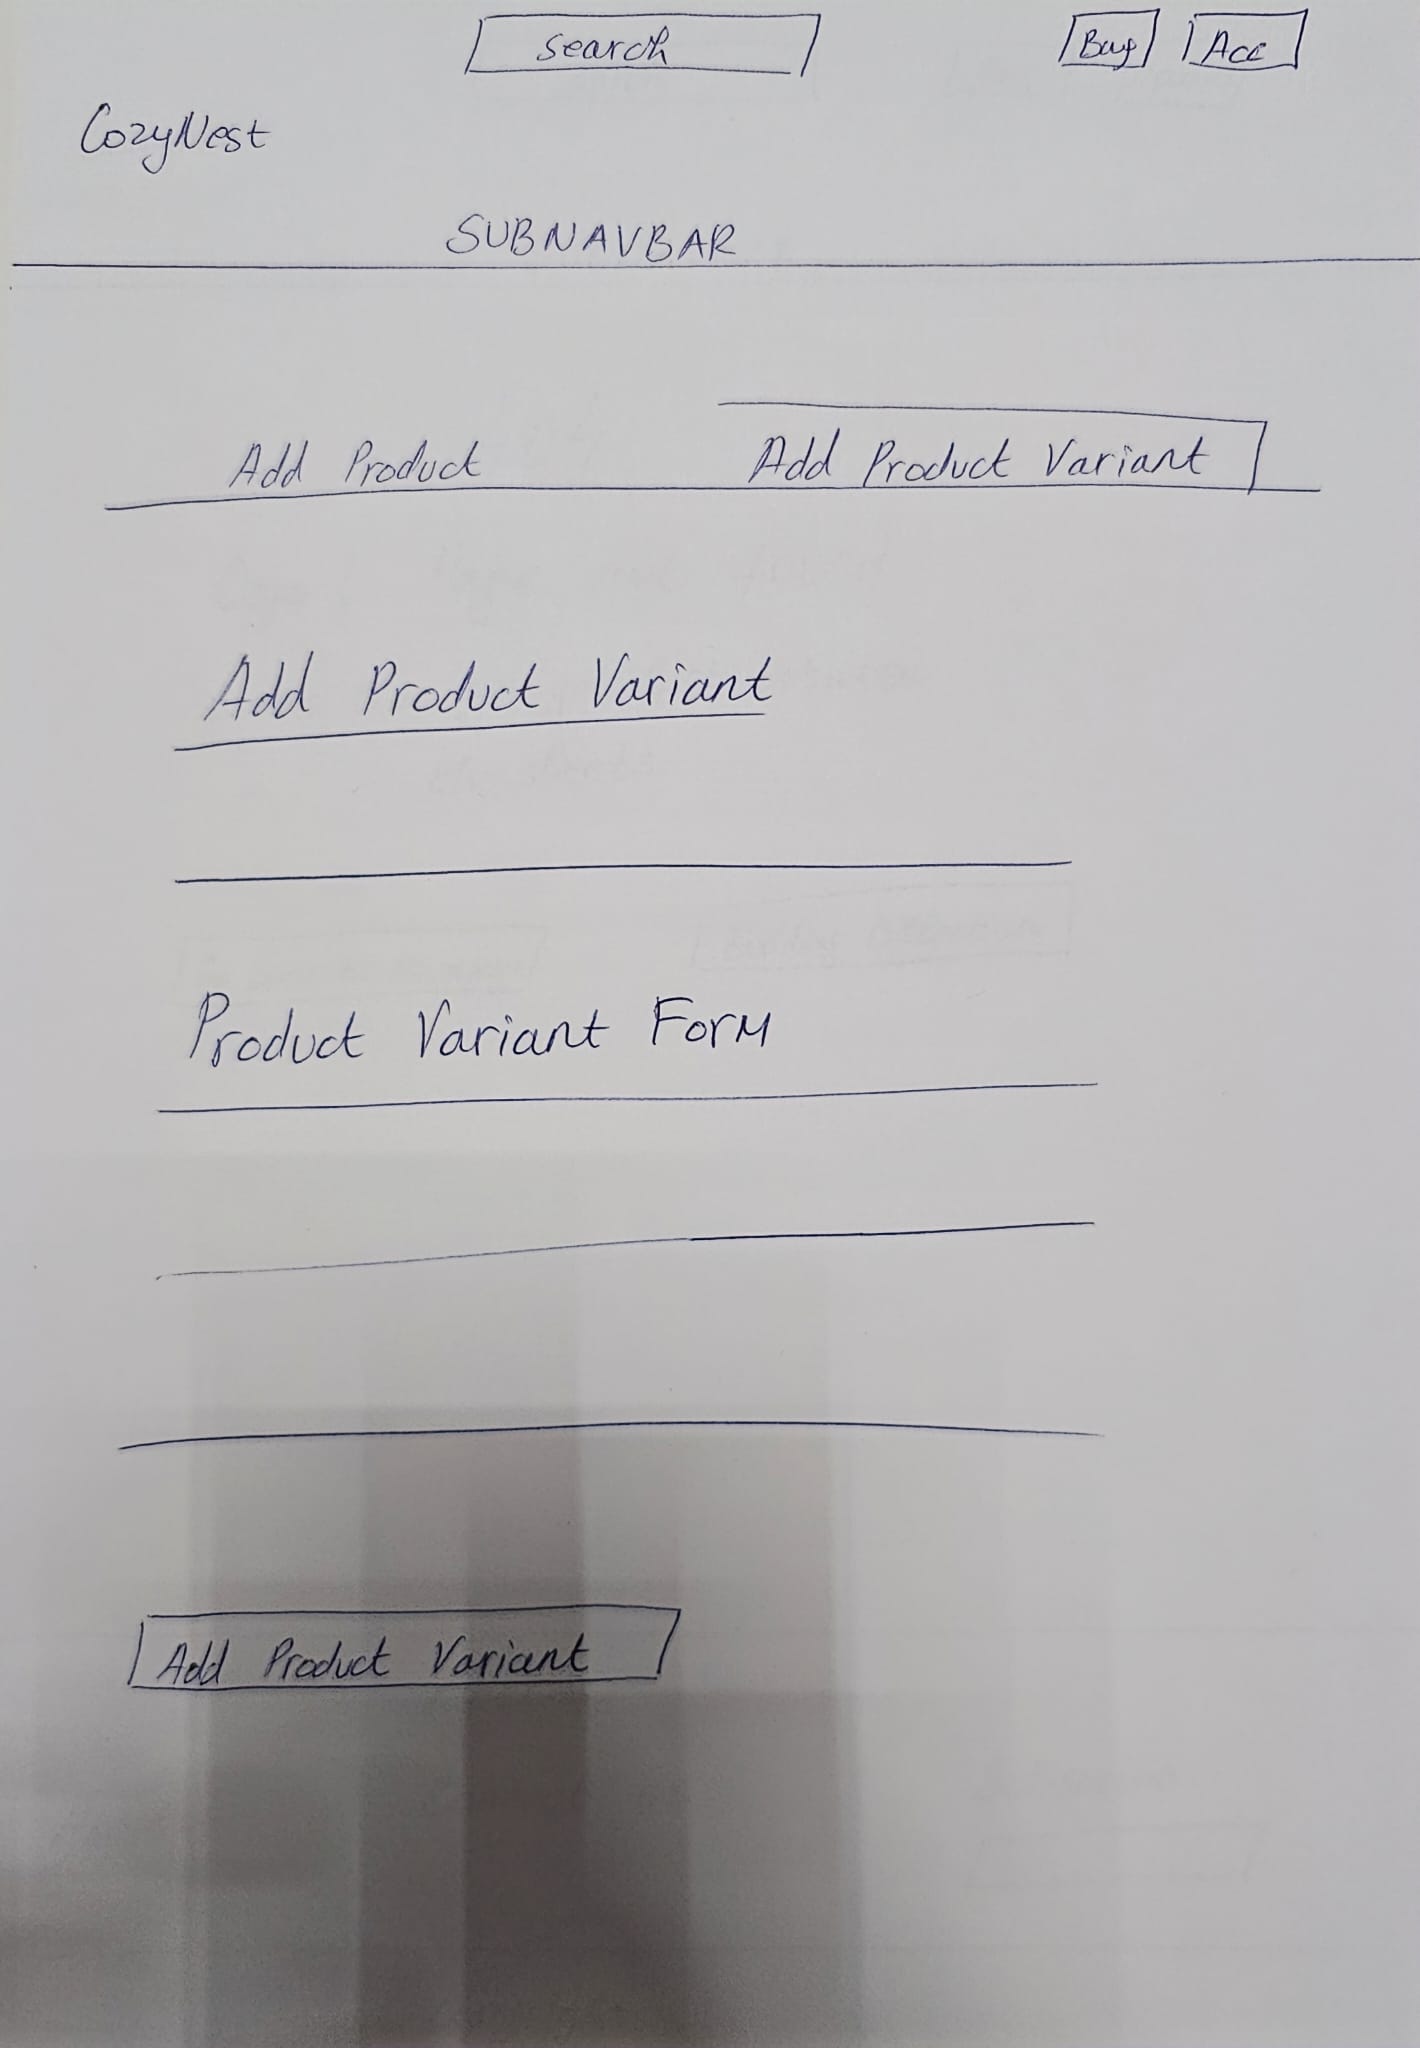 search
Bag
Acc
CozyNest
SUBNAVBAR
Add Product
Add Product Variant
Add Product Variant
Product Variant Form
Add Product Variant